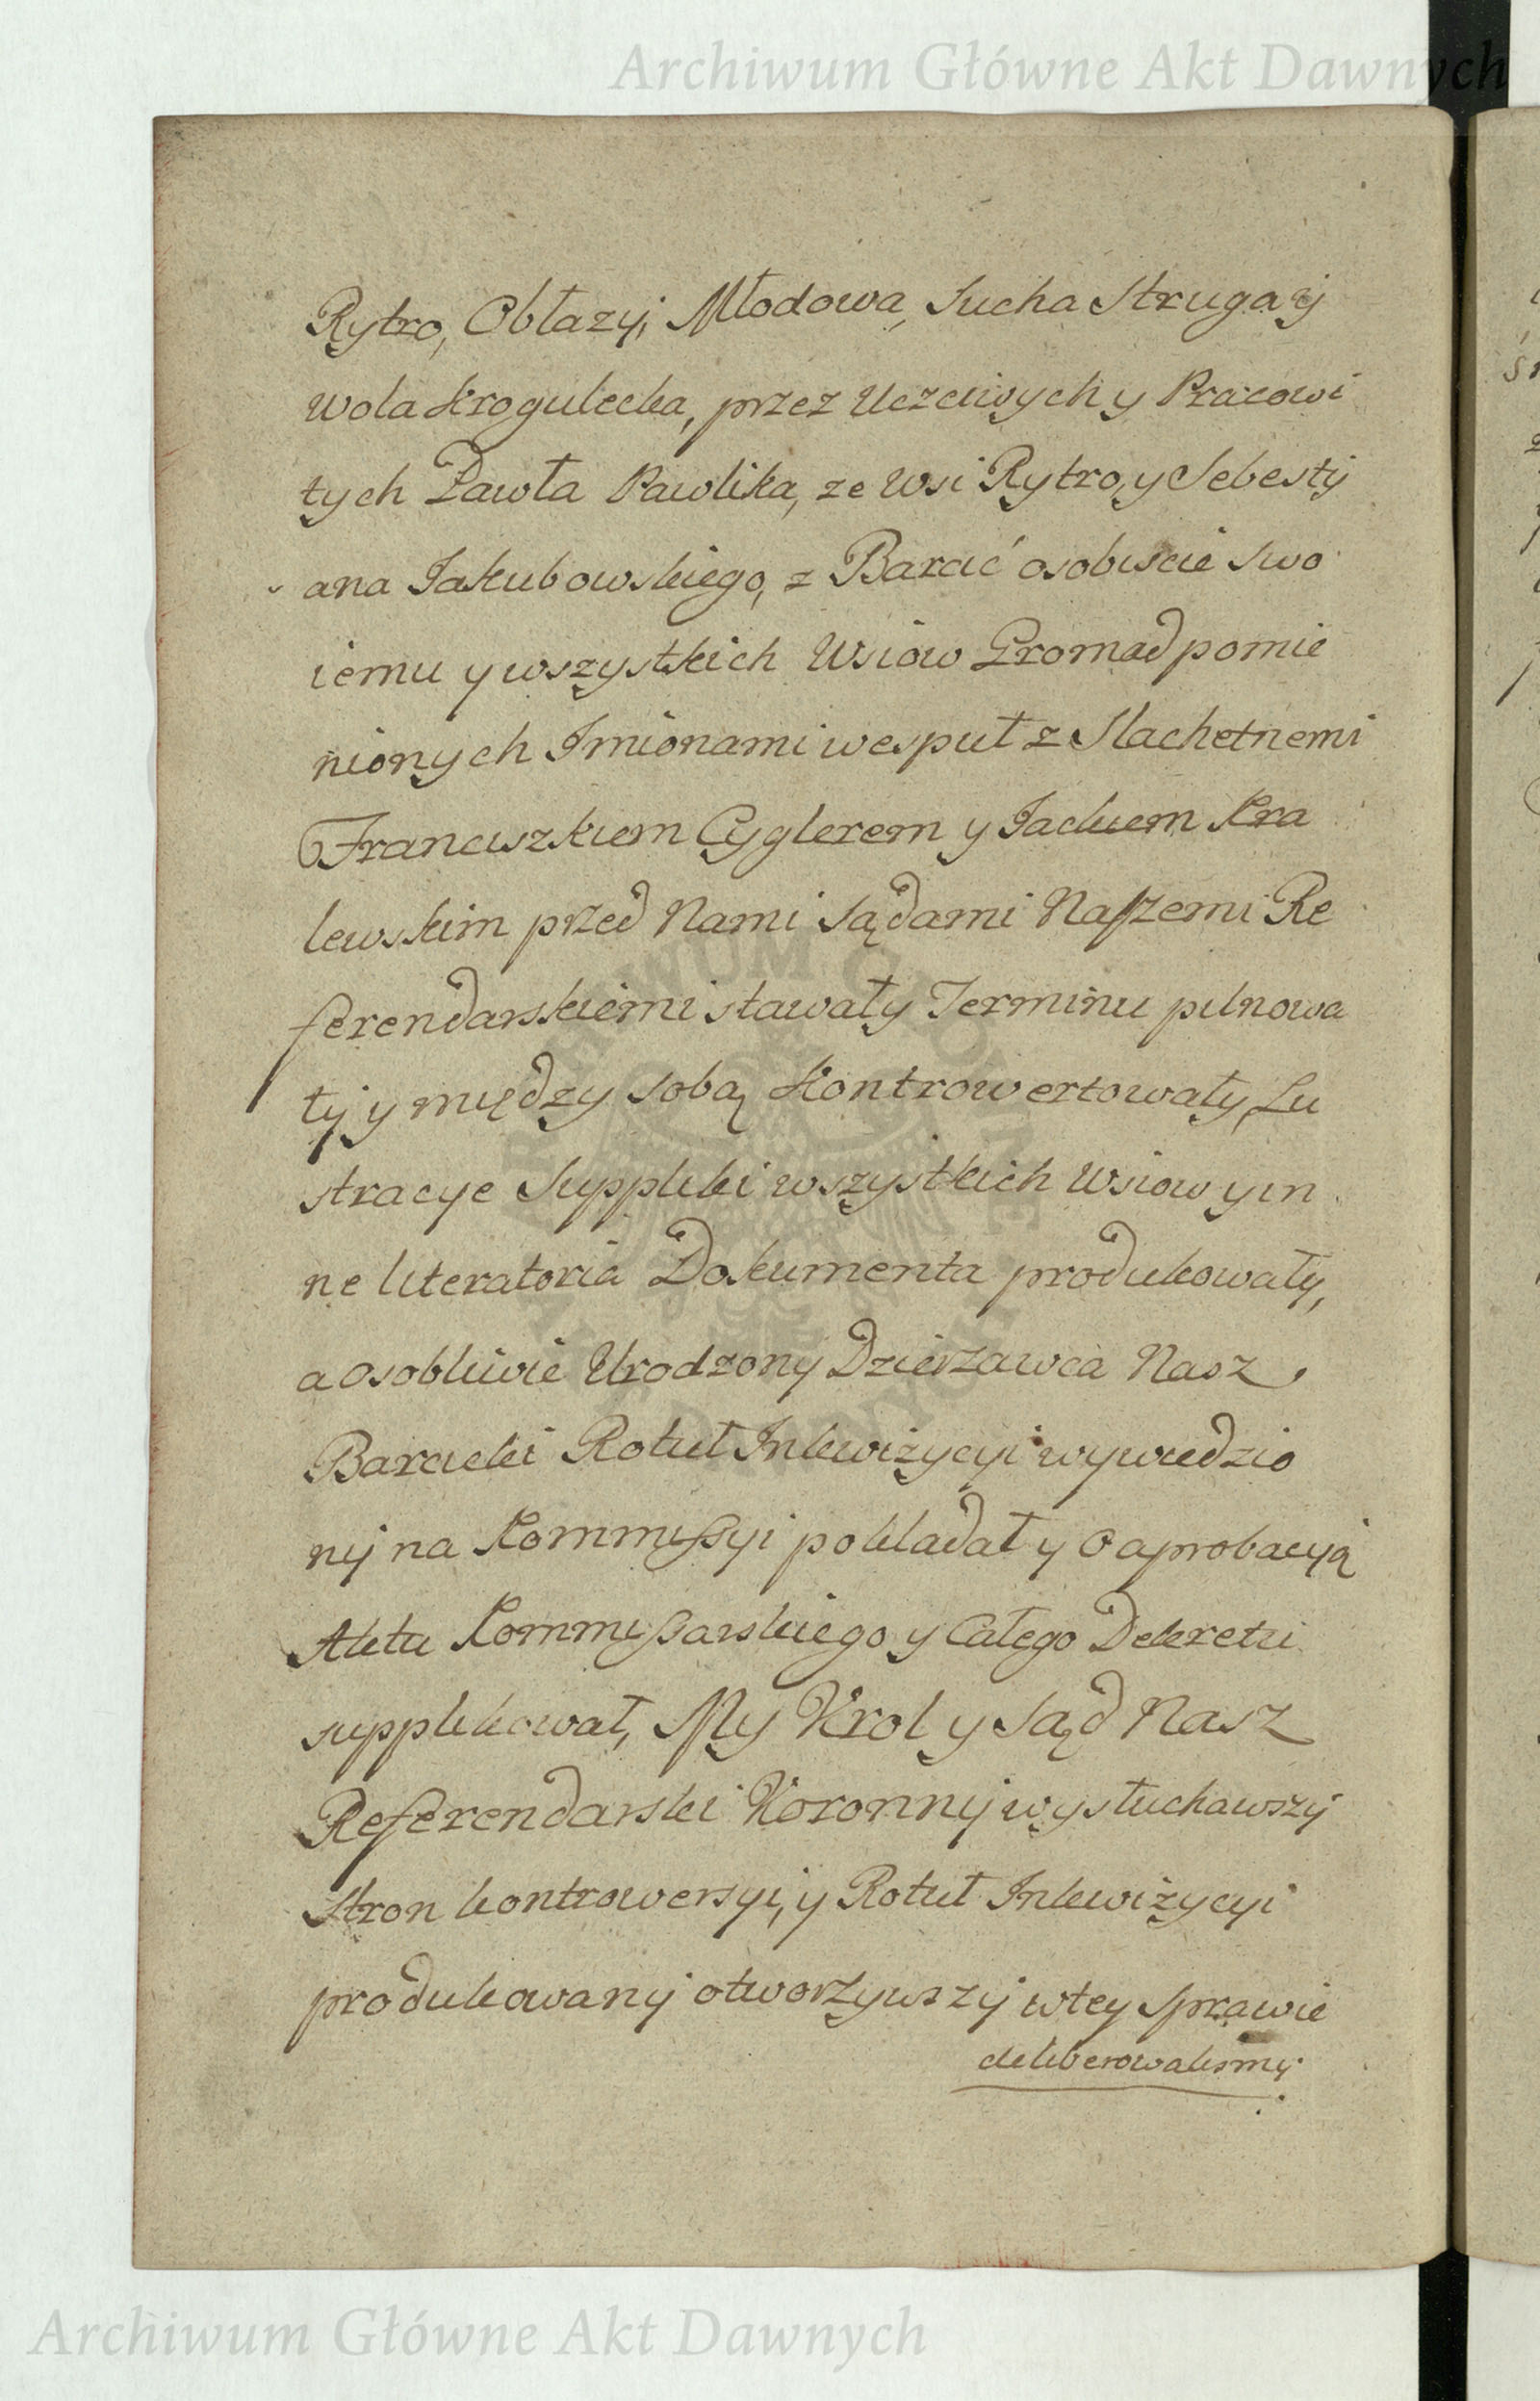 Archiwum Główne Akt Dawnych
Rytro, Obłazy, Młodowa, Sucha Struga y
Wola Krogulecka, przez Uczciwych y Pracowi
tych Pawła Pawlika, ze Wsi Rytro, y Sebesty
ana Jakubowskiego, z Barcic osobiscie swo
iemu y wszystkich Wsiow Gromad pomie
nionych Jmionami wespuł z Slachetnemi
Franciszkiem Cyglerem y Jackiem Kra
lewskim przed Nami Sądami Naszemi Re
ferendarskiemi stawały Terminu pilnowa
ły y między sobą Kontrowertowały, Lu
stracye Suppliki wszystkich Wsiow y in
ne literatoria Dokumenta produkowały,
a osobliwie Urodzony Dzierzawca Nasz
Barcicki Rotuł Inkwizycyi wywiedzio
ny na Kommissyi pokładał y o aprobacyą
Aktu Kommissarskiego y Całego Dekretu
supplikował, My Krol y Sąd Nasz
Referendarski Koronny wysłuchawszy
Stron kontrowersyi, y Rotuł Inkwizycyi
produkowany otworzywszy w tey sprawie
deliberowalismy
Archiwum Główne Akt Dawnych